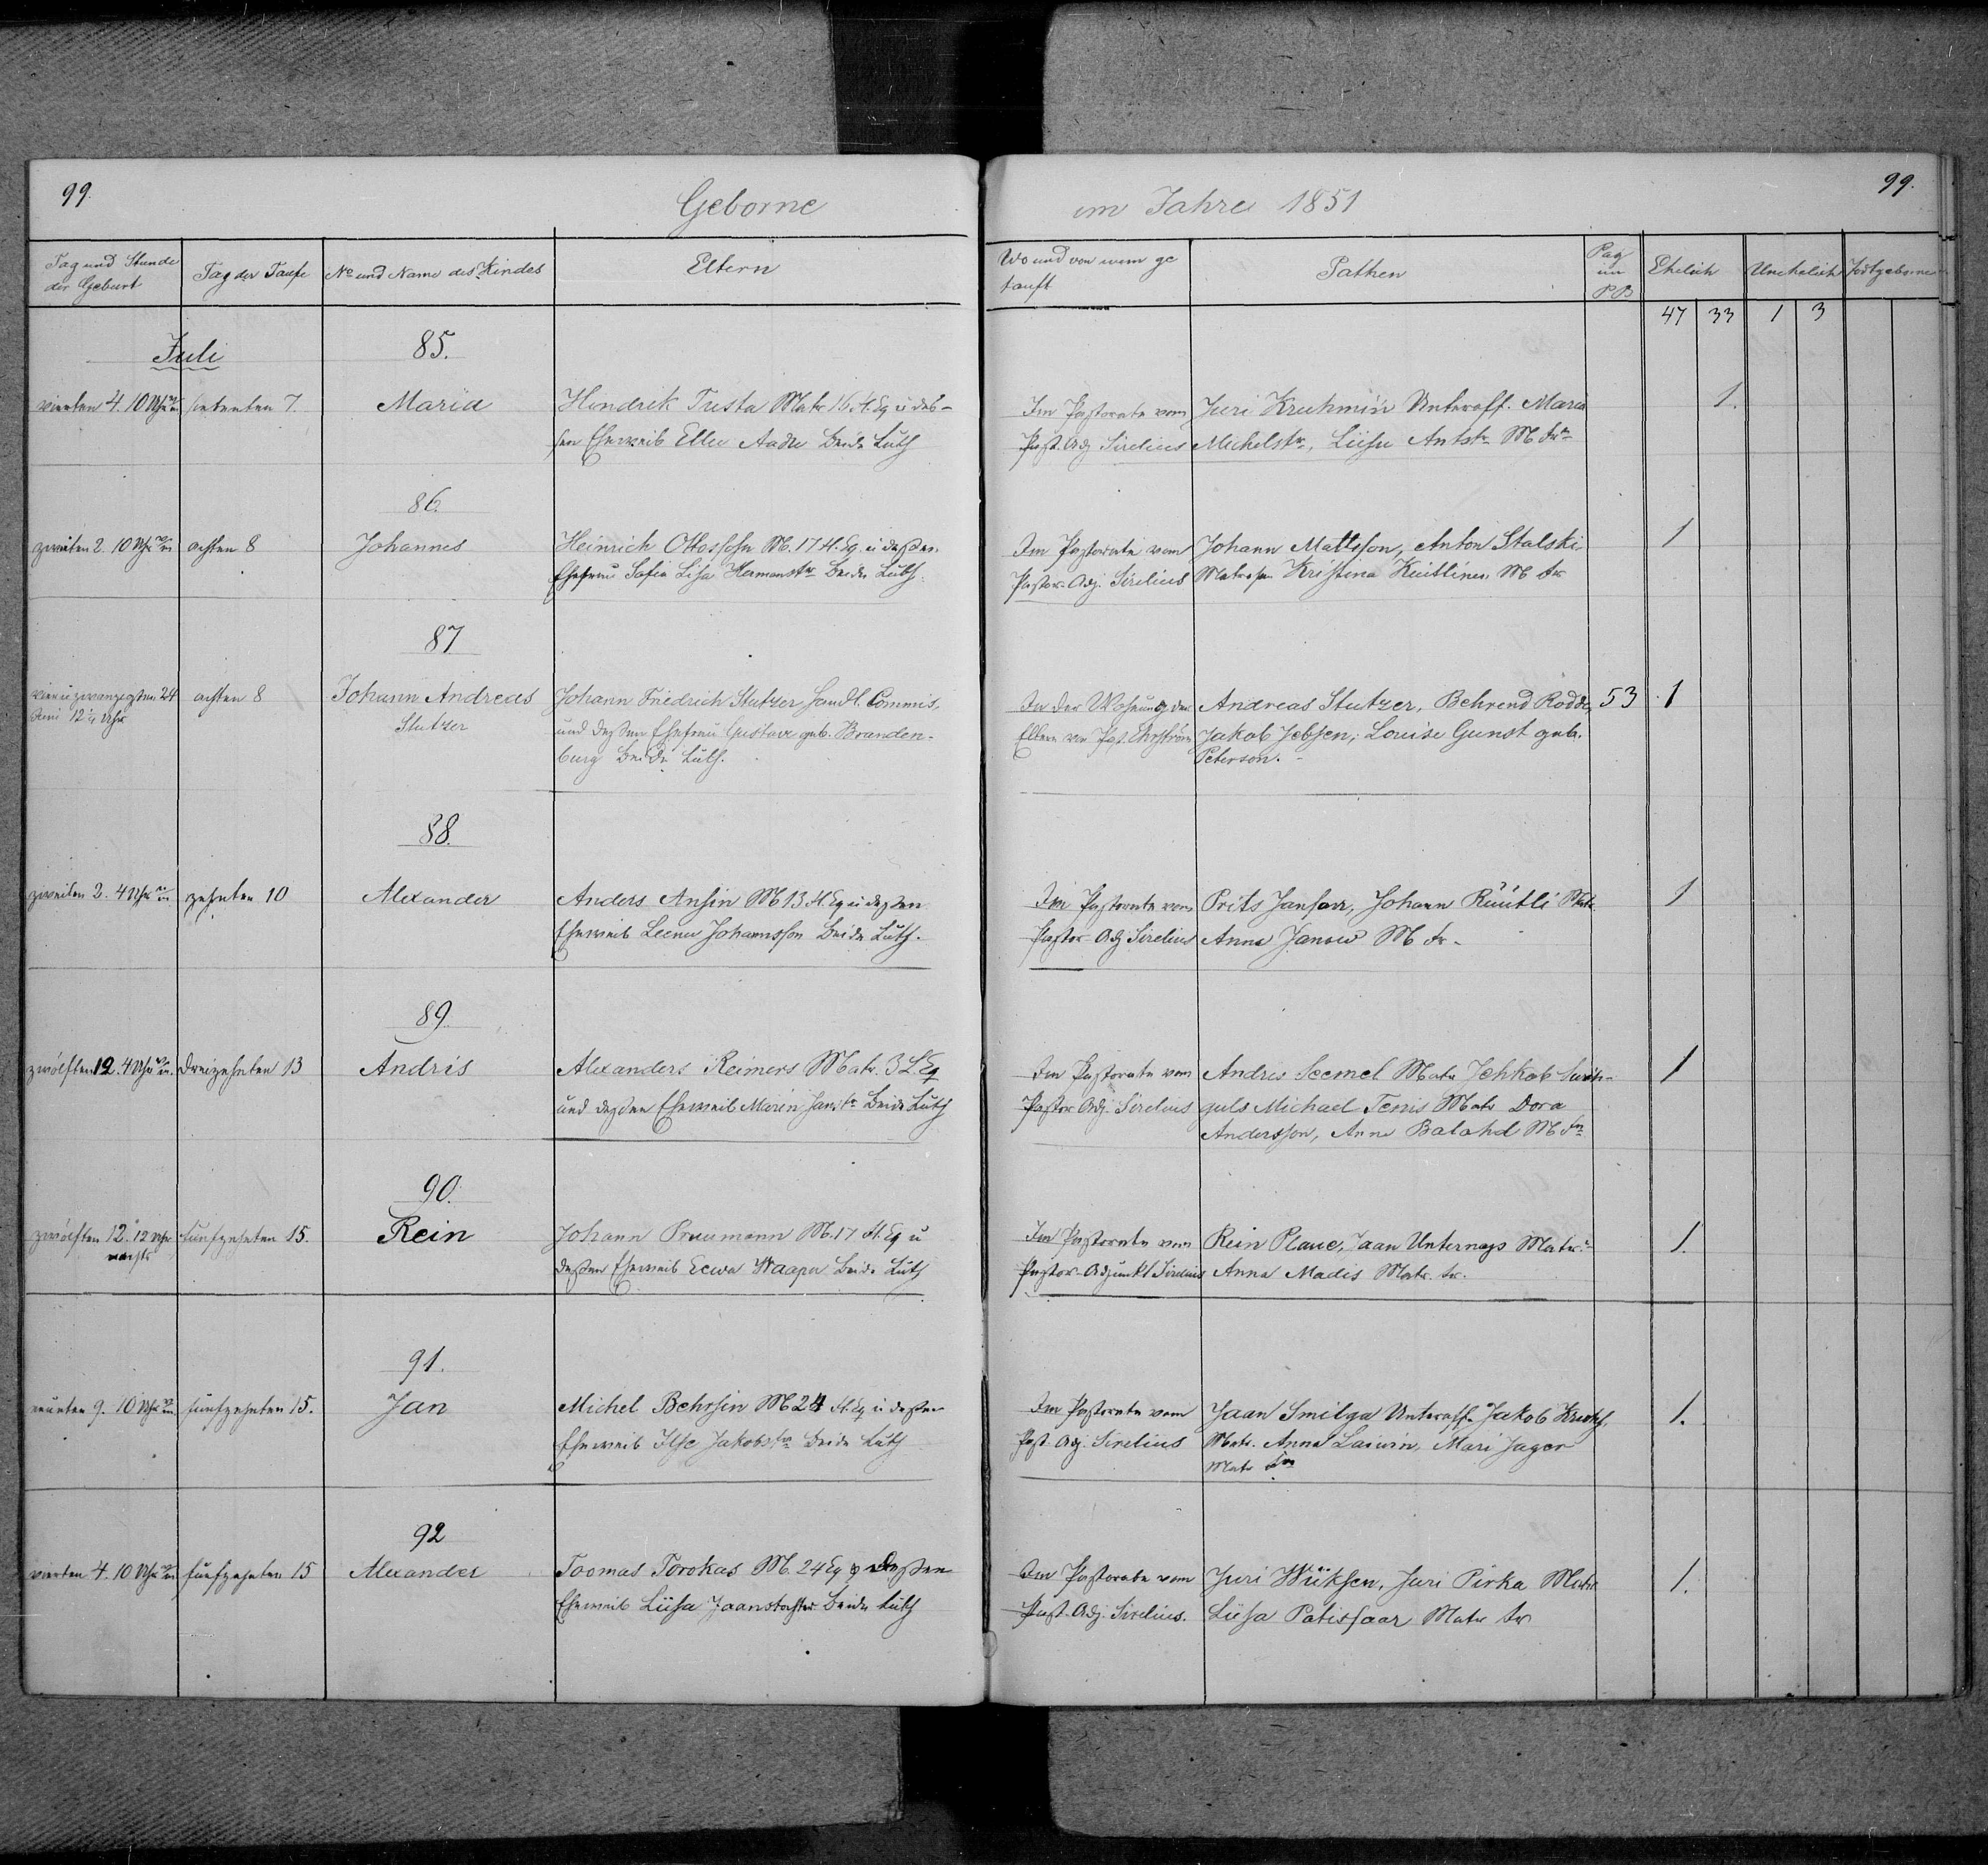 99.
Geborne
im Jahre 1851
99.
Tag und Stunde der Geburt
Tag der Taufe
No und Name des Kindes
Eltern
Wo und von wem getauft
Pathen
Pag im PB
Ehelich
Unehelich
Todtgeborne
47 33 1 3
Juli
85.
vierten 4. 10 Uhr
siebenten 7.
Maria
Hendrik Tresta Matr 16 H. Eq u des-
sen Eheweib Ellu Aadu beide Luth
Im Pastorate vom
Past. Adj Sirelius
Juri Kruhmin Unteroff. Maria
Michelstr., Liisu Antstr M fr
1.
86.
zweiten 2. 10 Uhr
achten 8
Johannes
Heinrich Ottossohn M. 17 H. Eq. u dessen
Ehefrau Sofia Lisa Hermanstr beide Luth.
Im Pastorate vom
Pastor-Adj. Sirelius
Johann Mattsson, Anton Stalski
Matrosen Kristina M fr
1
87
vierundzwanzigsten 24
Juni 12 1/4 Uhr
achten 8
Johann Andreas
Stutzer
Johann Friedrich Stutzer Handl. Commis,
und dessen Ehefrau Gustava geb. Branden-
burg beide Luth.
In der Wohnung der
Eltern von Past. Ehrström
Andreas Stutzer, Behrend Rodde,
Jakob Jebsen, Louise Gunst geb.
Peterson.
53
1
88.
zweiten 2. 4 Uhr
zehnten 10
Alexander
Anders Ansin M 13 H. Eq u dessen
Eheweib Leena Johannsson beide Luth.
Im Pastorate vom
Pastor Adj Sirelius
Prits Jansan, Johann Rüütli Matr
Anna Janow M fr.
1
89.
zwölften 12. 4 Uhr
dreizehnten 13
Andris
Alexanders Reimers Matr. 3 L. Eq
und dessen Eheweib Marin Janstr beide Luth
Im Pastorate vom
Pastor Adj. Sirelius
Andres Seemel Matr Jehkob
guls Michael Tenis Matr Dora
Andersson, Anna Balohd M fr
1
90.
zwölften 12. 12 Uhr
nachts
fünfzehnten 15.
Rein
Johann Pruumann M. 17 H. Eq u
dessen Eheweib Eewa Waaper beide Luth
Im Pastorate vom
Pastor-Adjunkt Sirelius
Rein Plaue, Jaan Unternags Matr.
Anna Madis Matr. fr.
1.
91.
neunten 9. 10 Uhr
fünfzehnten 15.
Jan
Michel Behrsin M 24 H. Eq u dessen
Eheweib Ilse Jakobstr beide Luth
Im Pastorate vom
Past Adj. Sirelius
Jaan Smilga Unteroff. Jakob
Matr. Anna Laiwin, Mari Jager
Matr fr
1.
92
vierten 4. 10 Uhr
fünfzehnten 15
Alexander
Toomas Torokas M. 24 Eq u dessen
Eheweib Liisa Jaanstochter beide Luth
Im Pastorate vom
Past. Adj. Sirelius.
Juri Wiiksen, Juri Pirka Matr
Liisa Patissaar Matr fr
1.